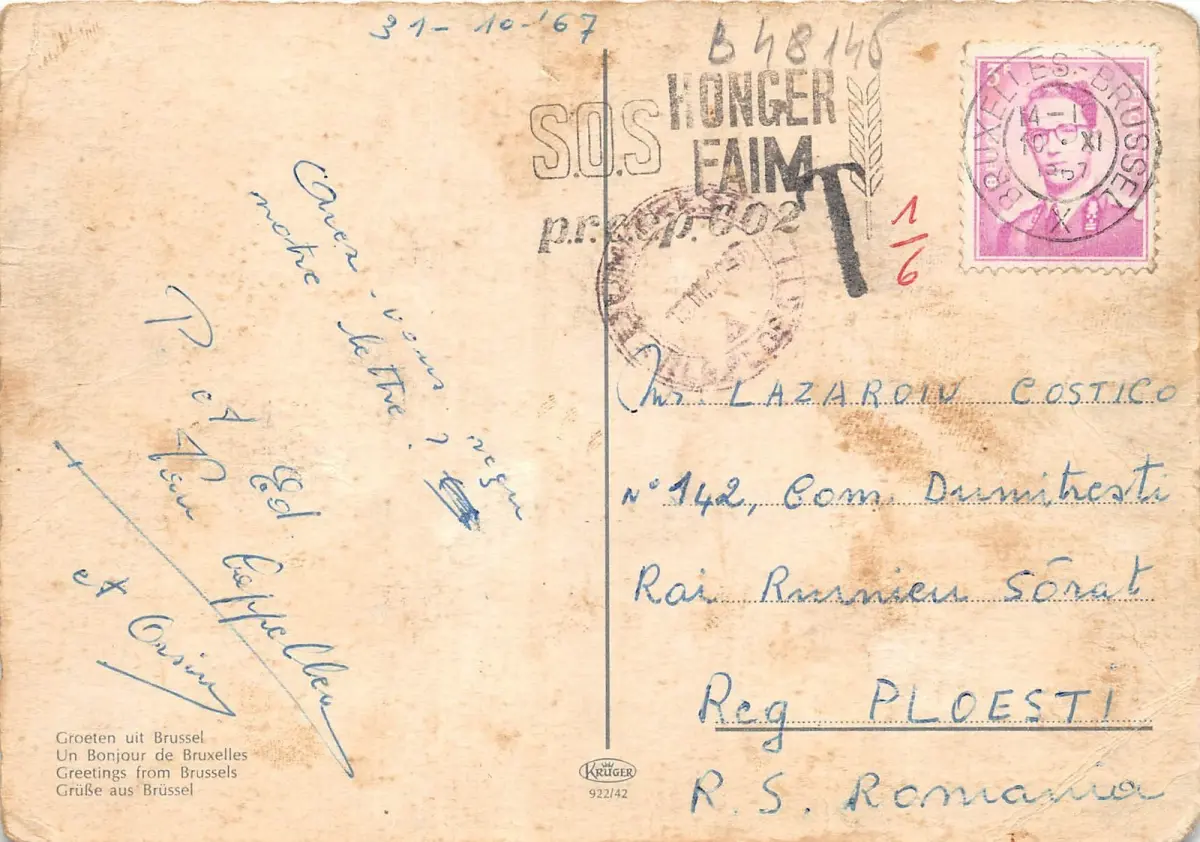 31-10-'67
B 48146
S.O.S HONGER
FAIM
p.c.p. 002
T
1/6
3F
BRUXELLES-BRUSSEL
14-1
10 XI
1967
X
Avez-vous reçu
notre lettre?
P. et Ed. Cappelleu
et Orsini
Mr. LAZAROIU COSTICO
N° 142, Com. Dumitresti
Rai Rumnicu Sôrat
Reg PLOESTI
R. S. Romania
Groeten uit Brussel
Un Bonjour de Bruxelles
Greetings from Brussels
Grüße aus Brüssel
KRÜGER
922/42